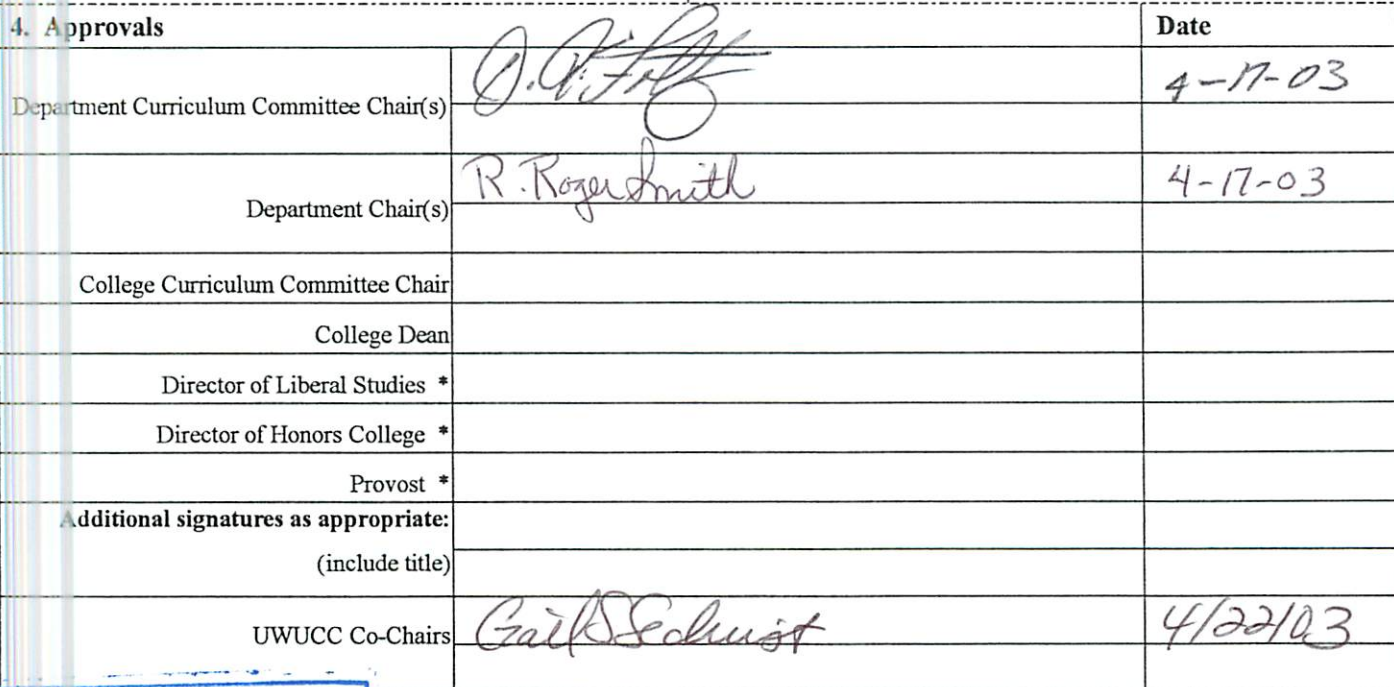 4. Approvals Date
Department Curriculum Committee Chair(s) 4-17-03
Department Chair(s) R. Roger Smith 4-17-03
College Curriculum Committee Chair
College Dean
Director of Liberal Studies *
Director of Honors College *
Provost *
Additional signatures as appropriate:
(include title)
UWUCC Co-Chairs Gail S Sechrist 4/22/03